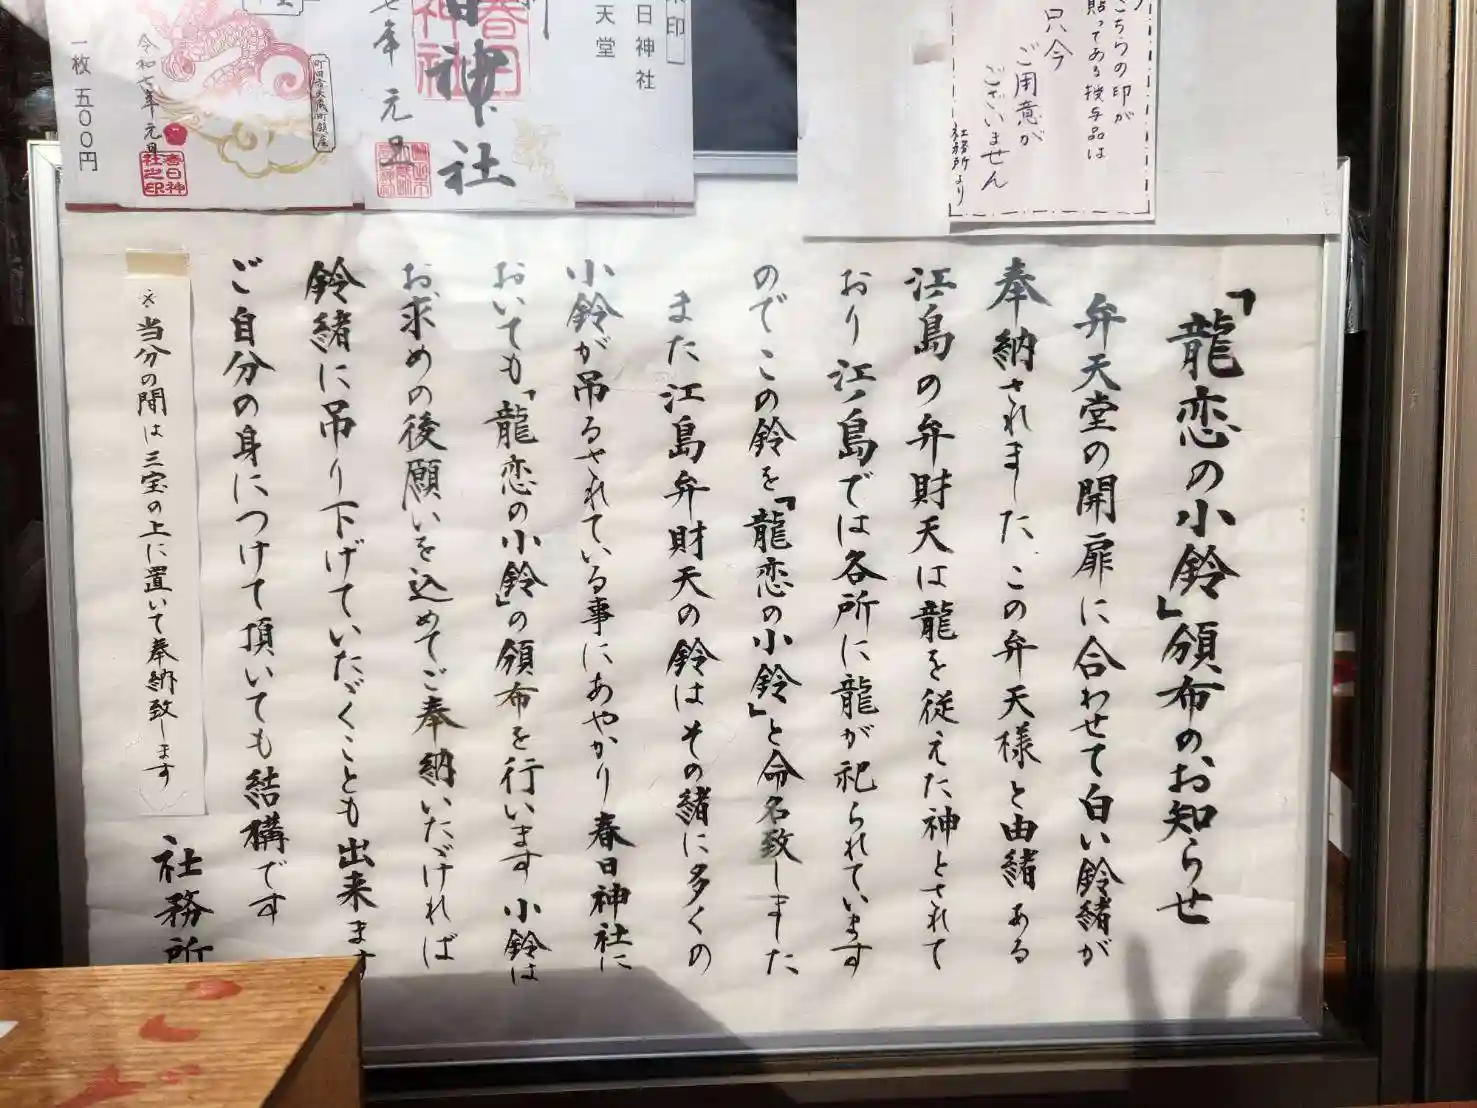 「龍恋の小鈴」頒布のお知らせ
弁天堂の開扉に合わせて白い鈴緒が
奉納されました。この弁天様と由緒ある
江ノ島の弁財天は龍を従えた神とされて
おり江ノ島では各所に龍が祀られています
のでこの鈴を「龍恋の小鈴」と命名致しました
また江島弁財天の鈴はその緒に多くの
小鈴が吊るされている事にあやかり春日神社に
おいても「龍恋の小鈴」の頒布を行います 小鈴は
お求めの後願いを込めてご奉納いただければ
鈴緒に吊り下げていただくことも出来ます
ご自分の身につけて頂いても結構です
※当分の間は三宝の上に置いて奉納致します
社務所
こちらの印が
貼ってある授与品は
只今
ご用意が
ございません
社務所より
朱印
日神社
天堂
春日
神社
日神社
七年 元旦
町田市大蔵町鎮座
令和七年元旦
春日神
社之印
一枚 五〇〇円